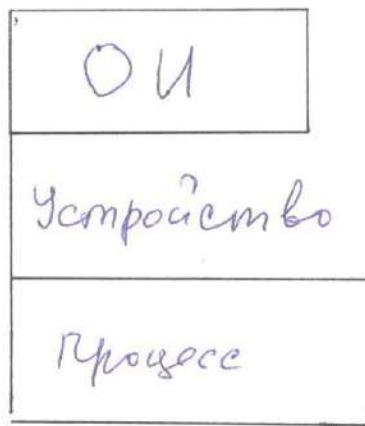 ОИ
Устройство
Процесс